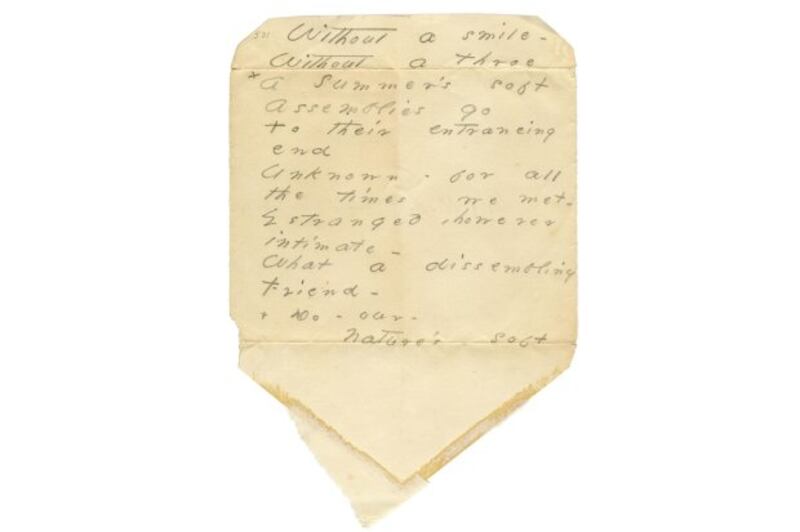 501 Without a smile -
Without a Throe
+ A Summer's soft
Assemblies go
to their entrancing
end
Unknown - for all
the times we met -
Estranged, however
intimate -
What a dissembling
Friend -
+ Do - our -
Nature's soft